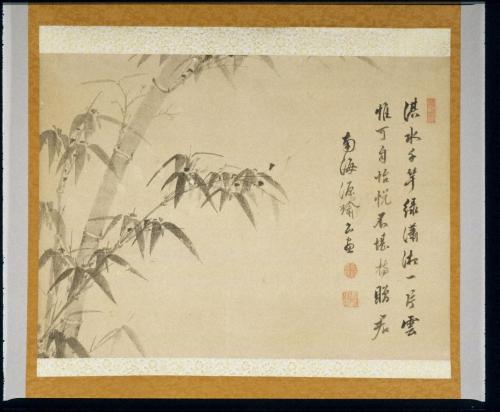 淇水千竿緑瀟湘一片雲
惟可自怡悦不堪持贈君
南海源瑜画